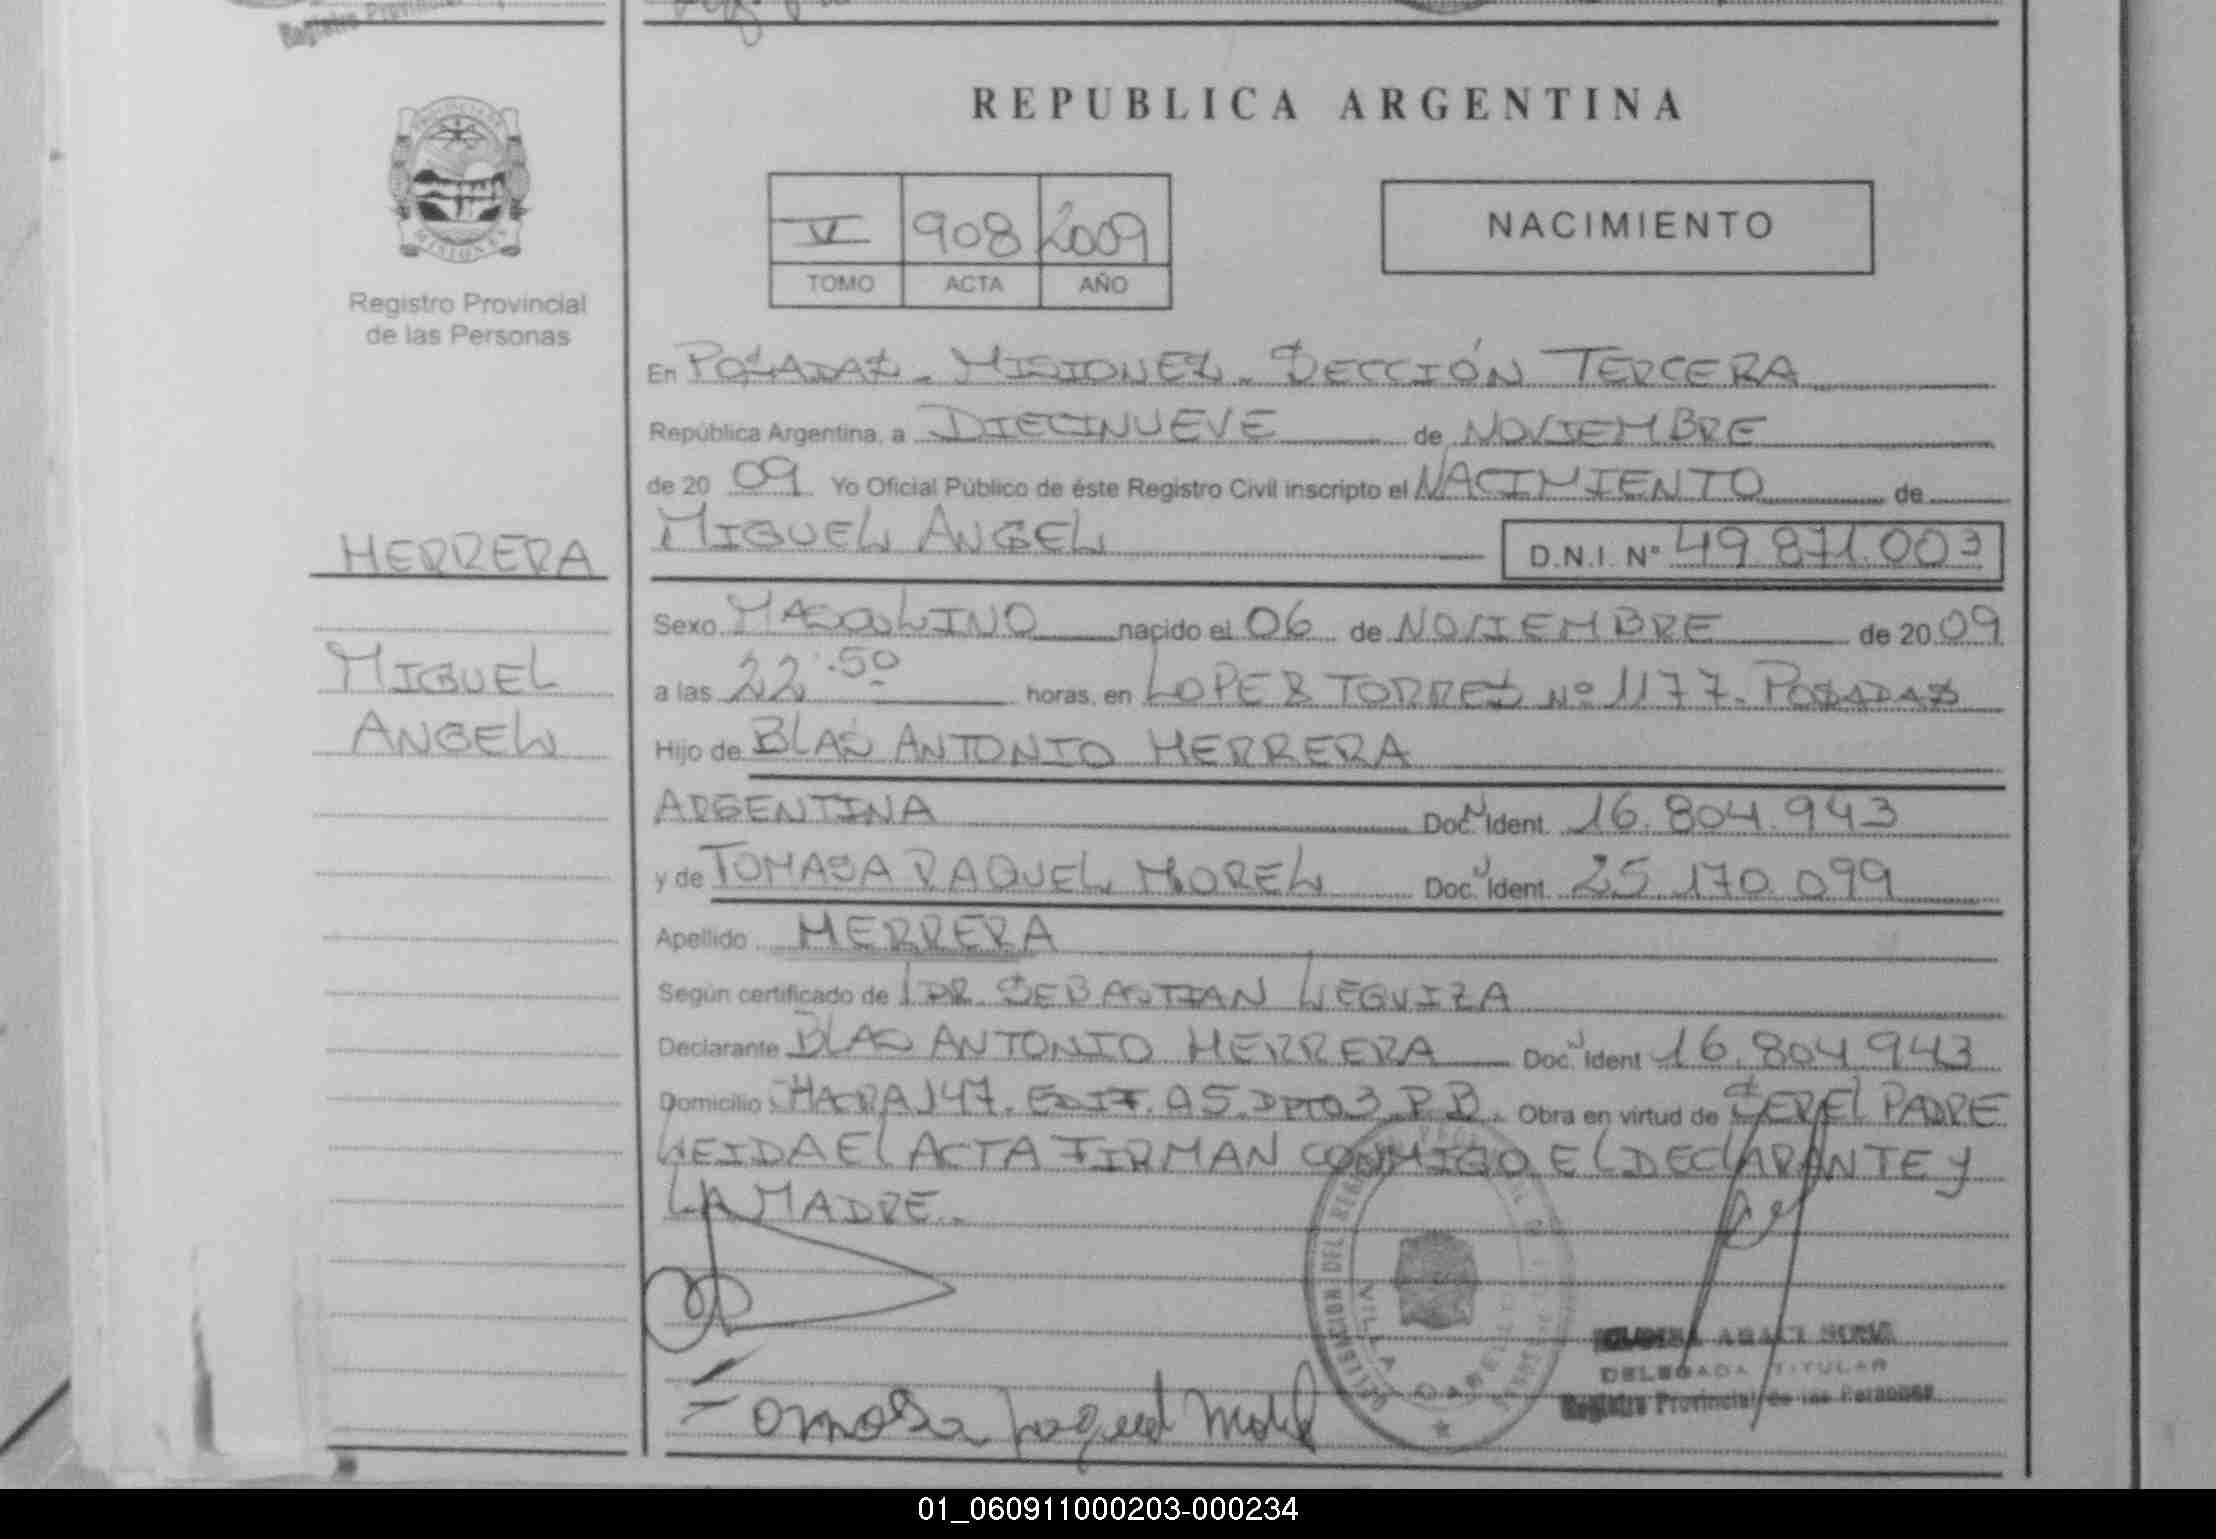 REPUBLICA ARGENTINA
PROVINCIA DE MISIONES
Registro Provincial
de las Personas
V 908 2009
TOMO ACTA AÑO
NACIMIENTO
En POSADAS - MISIONES - SECCIÓN TERCERA
República Argentina, a DIECINUEVE de NOVIEMBRE
de 20 09 Yo Oficial Público de éste Registro Civil inscripto el NACIMIENTO de
MIGUEL ANGEL D.N.I. Nº 49.871.003
HERRERA
MIGUEL
ANGEL
Sexo MASCULINO nacido el 06 de NOVIEMBRE de 20 09
a las 22:50 horas, en LOPEZ TORRES Nº 1177 - POSADAS
Hijo de BLAS ANTONIO HERRERA
ARGENTINA Doc. Ident. 16.804.943
y de TOMASA RAQUEL MOREL Doc. Ident. 25.170.099
Apellido HERRERA
Según certificado de DR. SEBASTIAN LEGUIZA
Declarante BLAS ANTONIO HERRERA Doc. Ident 16.804.943
Domicilio CHACRA 147. EDIF. A5. DPTO 3 P.B. Obra en virtud de SER EL PADRE
LEIDA EL ACTA FIRMAN CONMIGO EL DECLARANTE Y
LA MADRE.
Tomasa Raquel Morel
DELEGADA TITULAR
Registro Provincial de las Personas
01_060911000203-000234